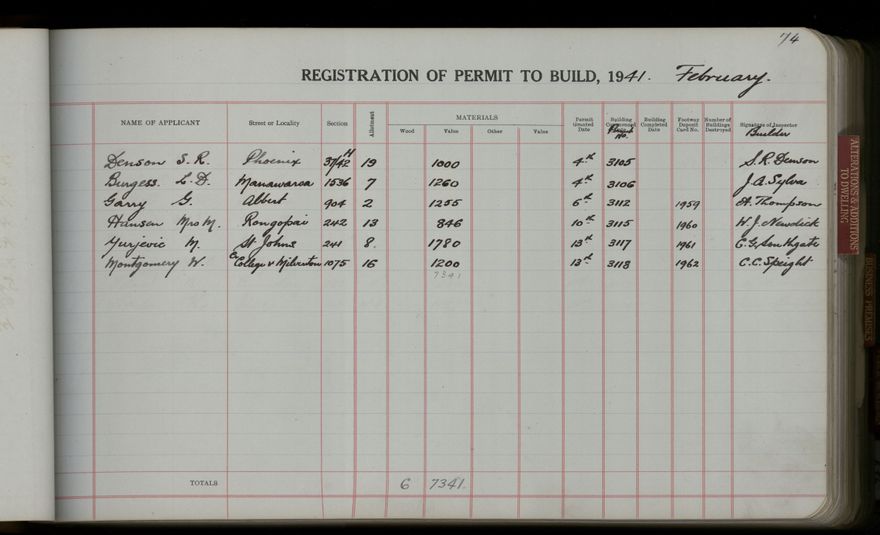 74
REGISTRATION OF PERMIT TO BUILD, 1941. February.
NAME OF APPLICANT Street or Locality Section Allotment MATERIALS Permit Granted Date Building Commenced Permit No. Building Completed Date Footway Deposit Card No. Number of Buildings Destroyed Signature of Inspector Builder
Wood Value Other Value
Denson S. R. Phoenix 19 1000 4th 3105 S. R. Denson
Burgess. L. D. Manawaroa 1536 7 1260 4th 3106 J. A. Sylva
Garry G. Albert 904 2 1255 6th 3112 1959 A. Thompson
Hansen Mrs M. Rongopai 242 13 846 10th 3115 1960 W. J. Newdick
Yurjevic M. St Johns 241 8. 1780 13th 3117 1961 C. G. Southgate
Montgomery W. Cr College & Milverton 1075 16 1200 13th 3118 1962 C. C. Speight
7341
TOTALS 6 7341.
ALTERATIONS & ADDITIONS
TO DWELLING
BUSINESS PREMISES